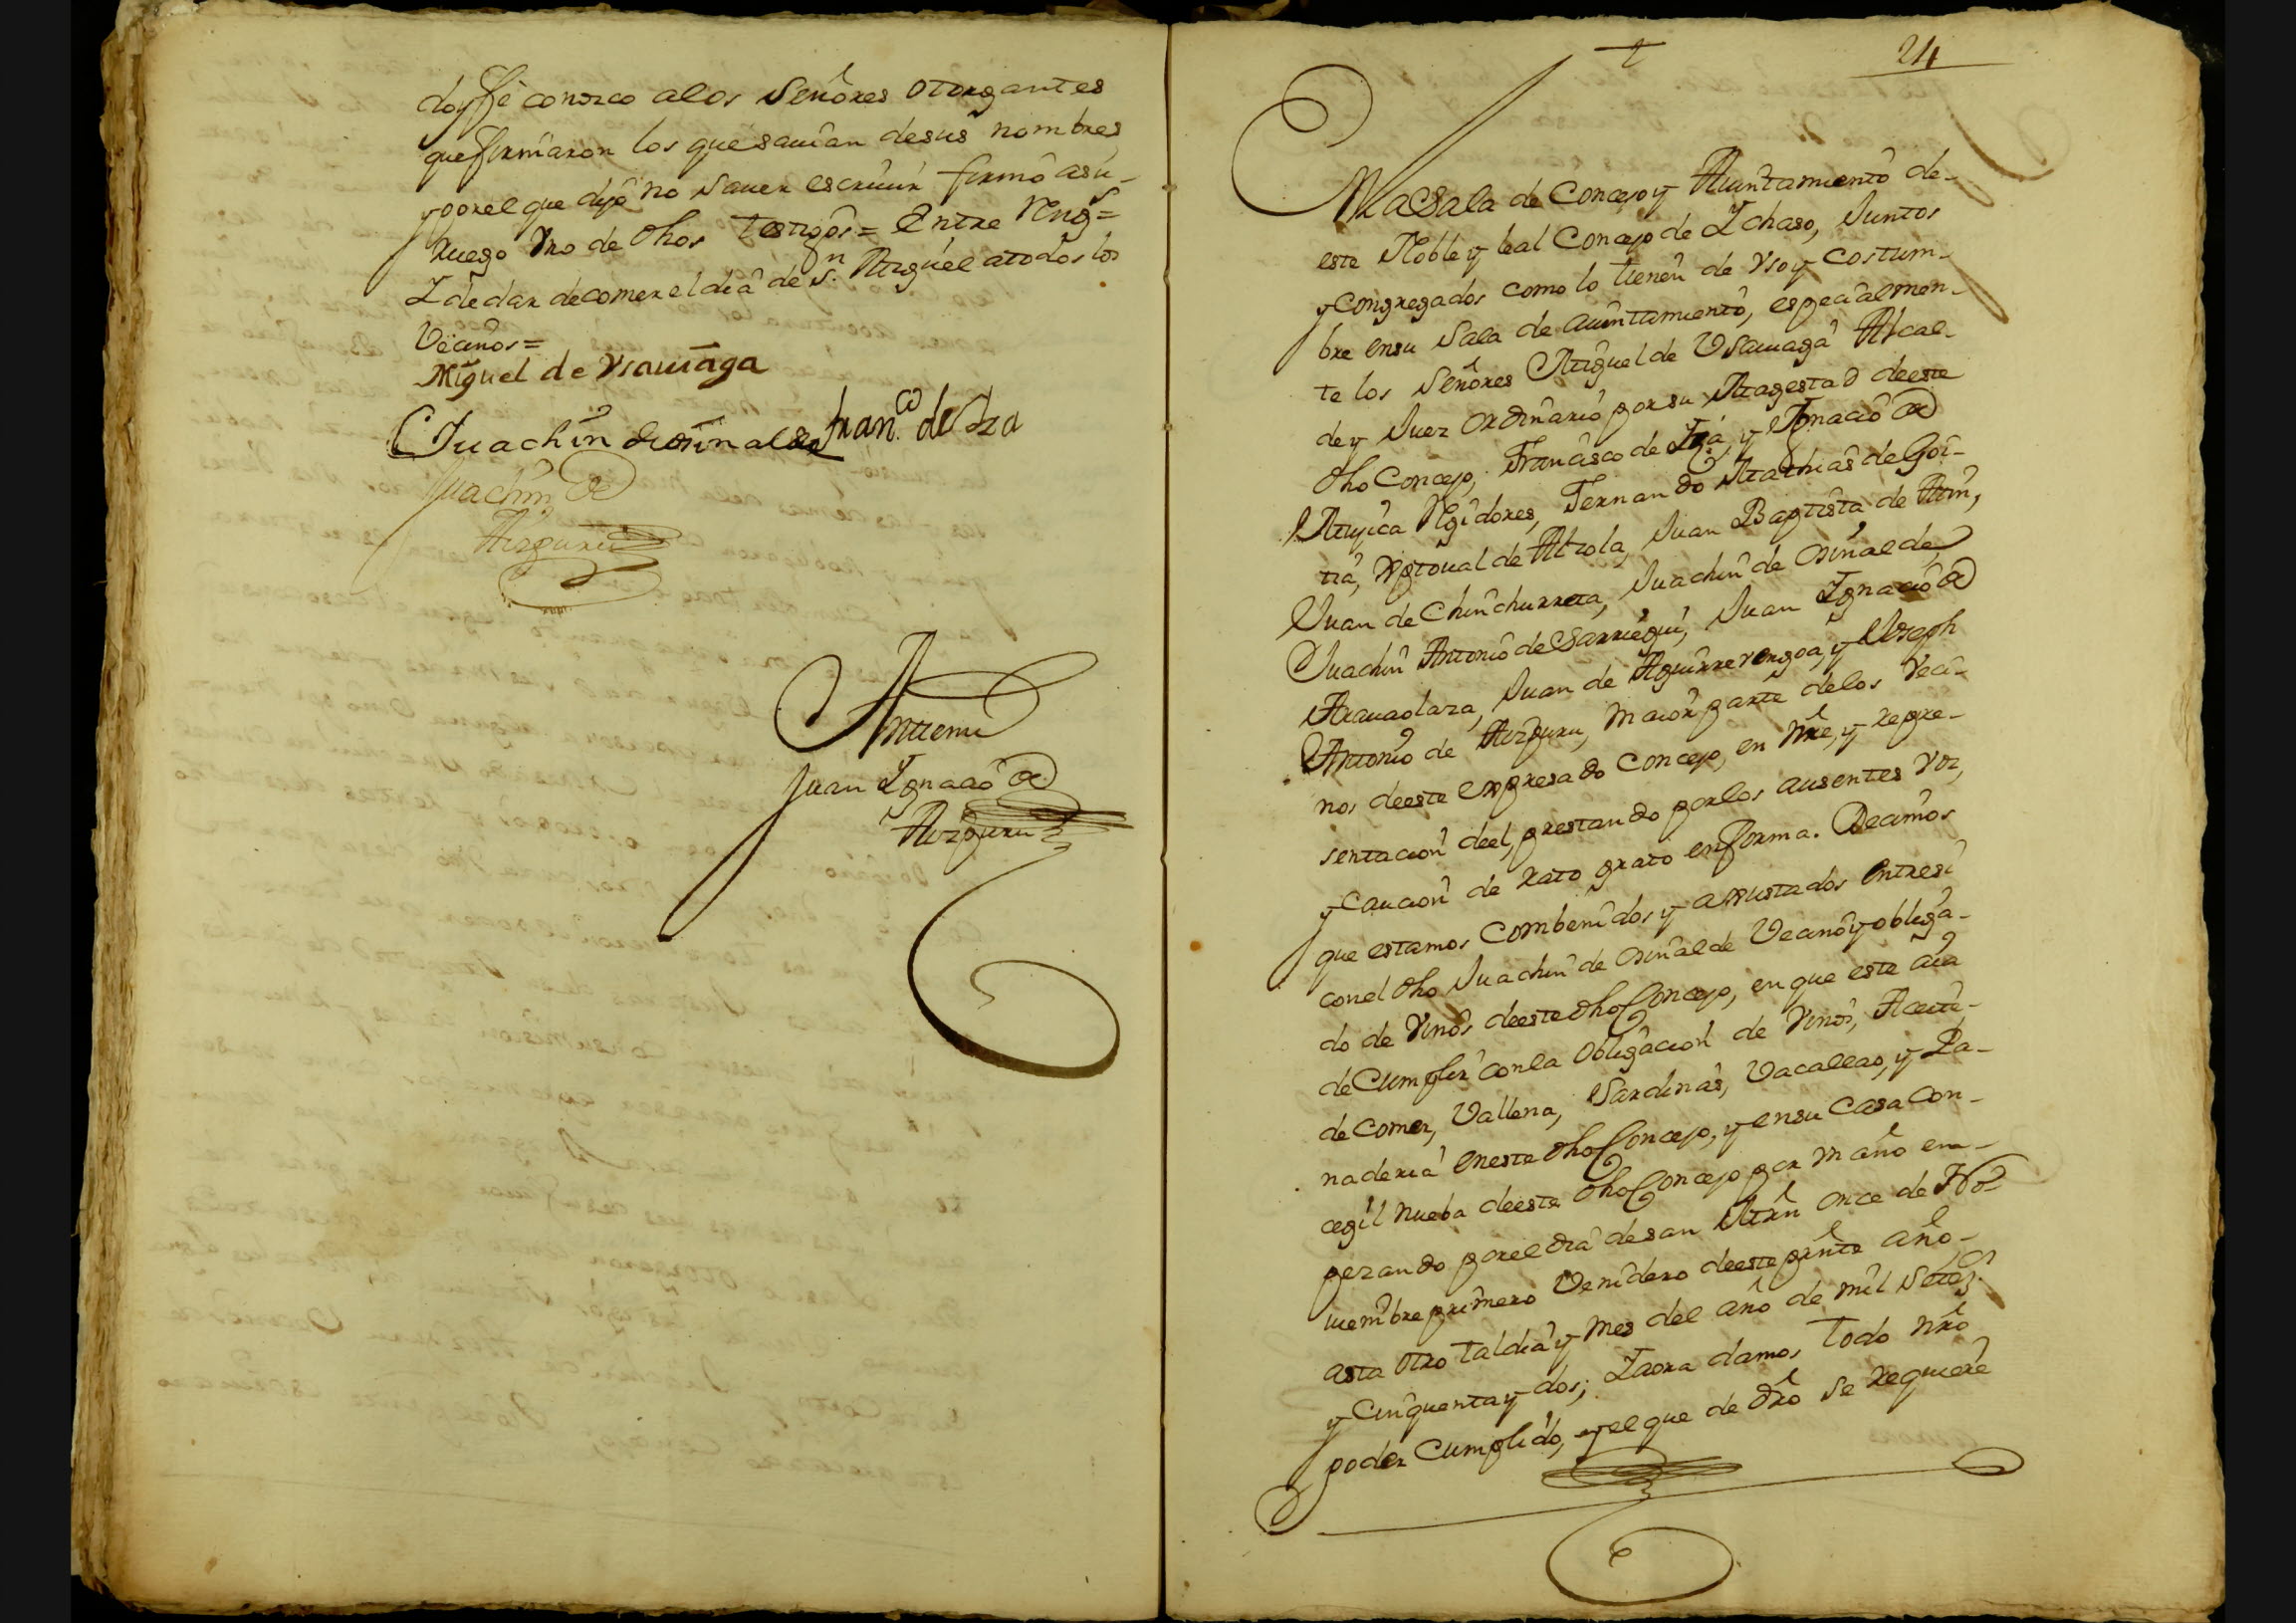 doy fê conozco alos Señores otorgantes
que firmaron los que sauian desus nombres
y por el que dijo no sauer escriuir firmô asu-
ruego Vno de dhos testigos = Entre Rengs =
I de dar de comer el dia de Sn. Miguel atodos los
Vecinos =
Miguel de Vsauiaga
Juachin de osinalde Franco. de Iza
Juachin de
Aizpuru
Antemi
Juan Ignacio de
Aizpuru
24
En la Sala de Concejo y Aiuntamiento de-
este Noble y leal Concejo de Ichaso, Juntos
y Congregados como lo tienen de Vso y Costum-
bre ensu Sala de aiuntamiento, especialmen-
te los Señores Miguel de Vsauiaga Alcal-
de y Juez Ordinario por su Magestad deeste
dho Concejo, Francisco de Iza, y Ignacio de
Mujica Rejidores, Fernando Mathias de Goi-
tia, Xptoual de Alzola, Juan Baptista de
Juan de Chinchurreta, Juachin de Osinalde
Juachin Antonio de Sarriegui, Juan Ignacio de
Arauaolaza, Juan de Aguirrezengoa, y Joseph
Antonio de Aizpuru, maior parte delos Veci-
nos deeste expresado Concejo, en nre, y repre-
sentacion deel, prestando porlos ausentes voz,
y Caucion de rato grato en forma. Decimos
que estamos Combenidos y ajustados entresi
conel dho Juachin de Osinalde Vecino y obliga-
do de Vinos deeste dho Concejo, en que este aia
de Cumplir conla obligacion de Vinos, Aceite-
de Comer, Vallena, Sardinas, Vacallao, y Pa-
naderia eneste dho Concejo, y ensu Casa Con-
cegil nueba deeste dho Concejo por un año em-
pezando porel dia desan Mrn once de No-
uiembre primero Venidero deeste prnte año-
asta otro tal dia y mes del año de mil Setezs.
y Cinquenta y dos; I aora damos todo nro
poder Cumplido, y el que de dro se requiere